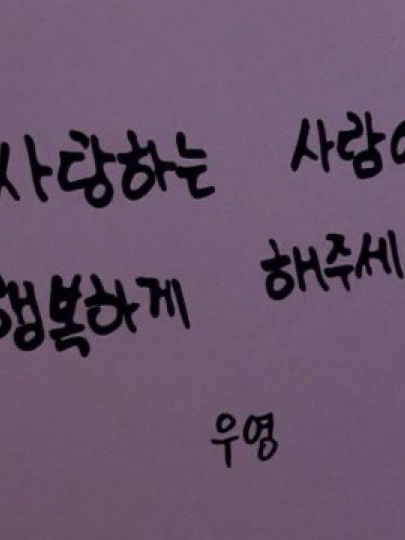 사랑하는 사람이
행복하게 해주세
우영